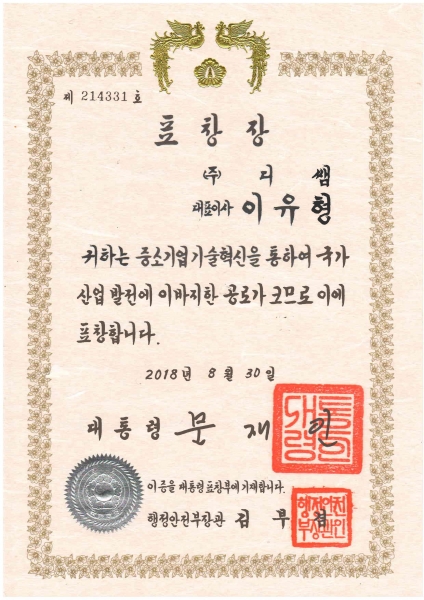 제 214331 호
표 창 장
(주) 디 쌤
대표이사 이 유 형
귀하는 중소기업기술혁신을 통하여 국가
산업 발전에 이바지한 공로가 크므로 이에
표창합니다.
2018년 8월 30일
대통령 문 재 인
이 증을 대통령표창부에 기재합니다.
행정안전부장관 김 부 겸